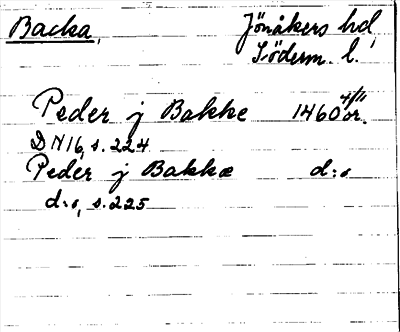 Backa, Jönåkers hd,
Söderm. l.
Peder j Bakke 1460 4/11 or.
DN16, s. 224
Peder j Bakkæ d:o
d:o, s. 225